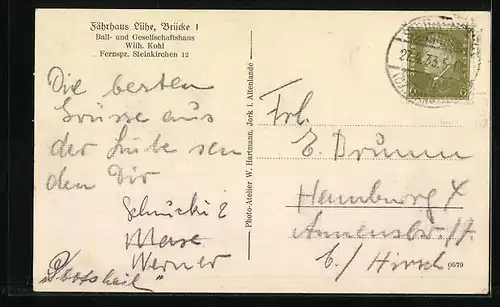 Fährhaus Lühe, Brücke 1
Ball- und Gesellschaftshaus
Wilh. Kohl
Fernspr. Steinkirchen 12
Die besten
Grüsse aus
der Lühe sen
den Dir
Schnucki &
Werner
Photo-Atelier W. Hartmann, Jork i. Altenlande
6
6
Frl.
E. Brumm
Hamburg X
b/ Hirsch
6679